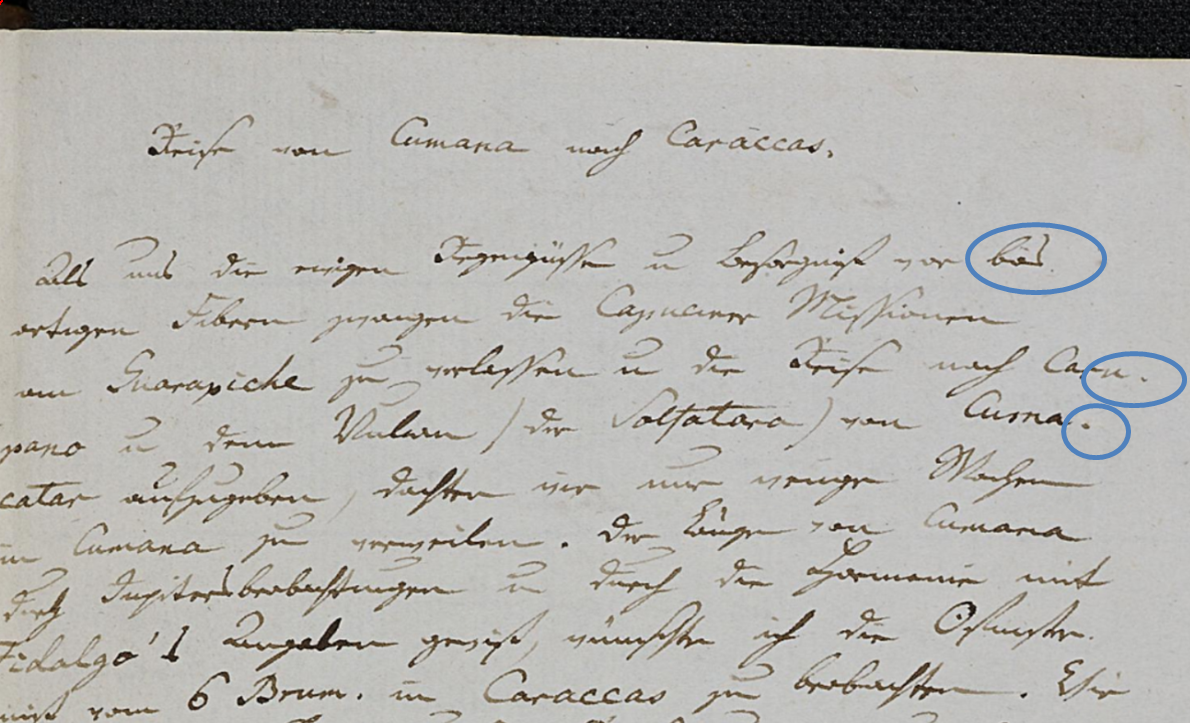 Reise von Cumana nach Caraccas.
Als uns die ewigen Regengüsse u Besorgniß vor bös
artigen Fibern zwangen die Capuciner Missionen
am Guarapiche zu verlassen u die Reise nach Caru.
pano u dem Vulcan (der Solfatara) von Cuma.
catar aufzugeben, dachten wir nur wenige Wochen
in Cumana zu verweilen. Der Länge von Cumana
durch Jupitersbeobachtungen u durch die Harmonie mit
Fidalgo's Angaben gewiß, wünschte ich die Osinster.
niß vom 6 Brum. in Caraccas zu beobachten. Wir